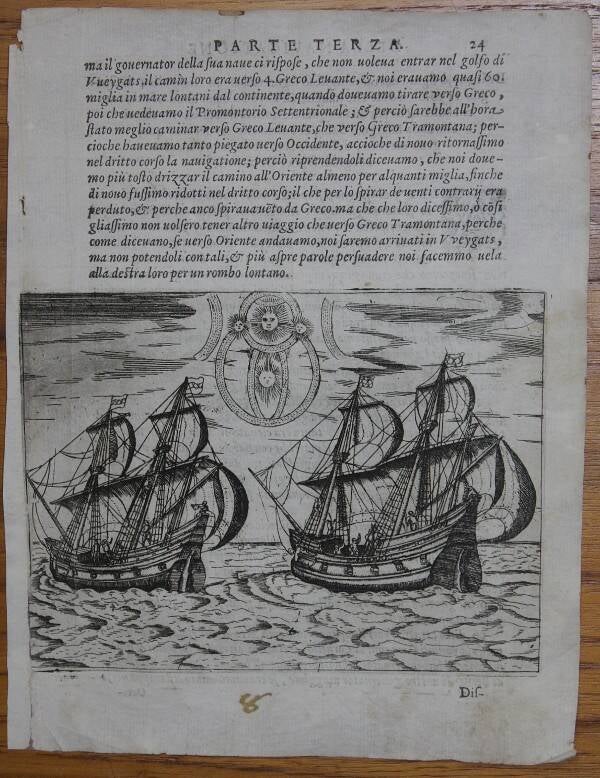 PARTE TERZA. 24
ma il governator della sua naue ci rispose, che non uoleua entrar nel golfo di
Vueygats, il camin loro era uerso 4. Greco Leuante, & noi erauamo quasi 60.
miglia in mare lontani dal continente, quando doueuamo tirare verso Greco,
poi che uedeuamo il Promontorio Settentrionale; & perciò sarebbe all'hora
stato meglio caminar verso Greco Leuante, che verso Greco Tramontana; per-
cioche haueuamo tanto piegato uerso Occidente, accioche di nouo ritornassimo
nel dritto corso la nauigatione; perciò riprendendoli diceuamo, che noi doue-
mo più tosto drizzar il camino all'Oriente almeno per alquanti miglia, finche
di nouo fussimo ridotti nel dritto corso; il che per lo spirar de uenti contrarij era
perduto, & perche anco spiraua uēto da Greco. ma che che loro dicessimo, ò cōsi
gliassimo non uolsero tener altro uiaggio che uerso Greco Tramontana, perche
come diceuano, se uerso Oriente andauamo, noi saremo arriuati in Vveygats,
ma non potendoli con tali, & più aspre parole persuadere noi facemmo uela
alla destra loro per un rombo lontano.
Dis-